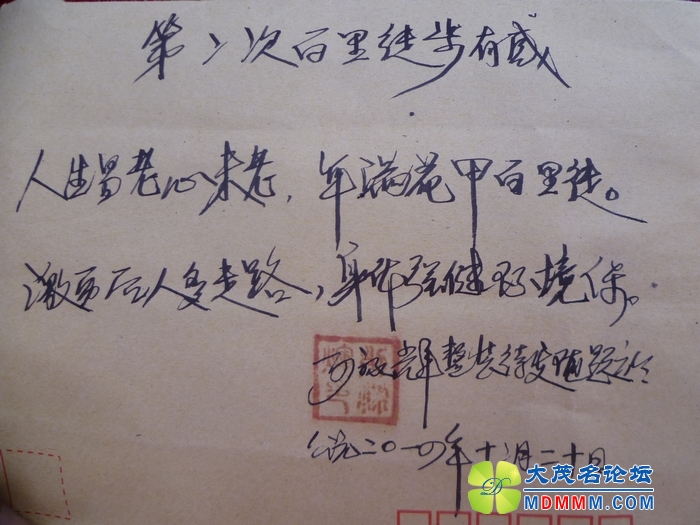 第二次百里徒步有感
人生易老心未老，年满花甲百里徒。
激励后人多走路，身体强健环境保。
整装待发随题
公元二〇一四年十二月二十日
大茂名论坛
MDMMM.COM